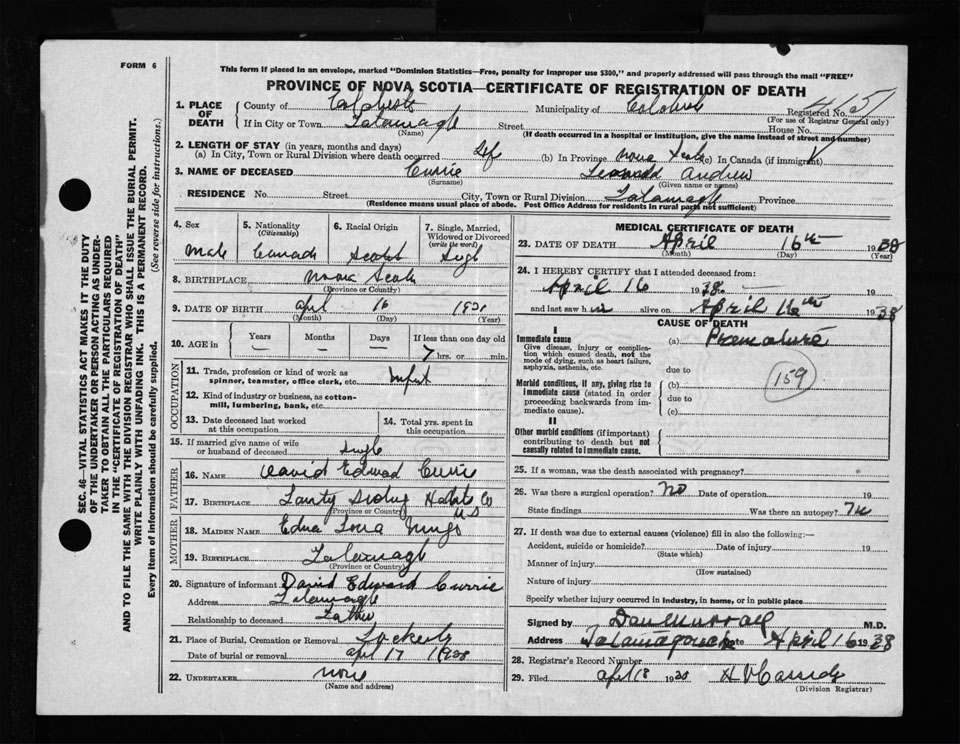 FORM 6
This form if placed in an envelope, marked "Dominion Statistics—Free, penalty for improper use $300," and properly addressed will pass through the mail "FREE"
PROVINCE OF NOVA SCOTIA—CERTIFICATE OF REGISTRATION OF DEATH
1. PLACE OF DEATH County of Municipality of Registered No.
(For use of Registrar General only)
If in City or Town Street House No.
(Name) (If death occurred in a hospital or institution, give the name instead of street and number)
2. LENGTH OF STAY (in years, months and days)
(a) In City, Town or Rural Division where death occurred (b) In Province (c) In Canada (if immigrant)
3. NAME OF DECEASED Currie Andrew
(Surname) (Given name or names)
RESIDENCE No. Street City, Town or Rural Division Province
(Residence means usual place of abode. Post Office Address for residents in rural parts not sufficient)
4. Sex 5. Nationality (Citizenship) 6. Racial Origin 7. Single, Married, Widowed or Divorced (write the word)
Male
8. BIRTHPLACE Nova
(Province or Country)
9. DATE OF BIRTH April 16
(Month) (Day) (Year)
10. AGE in Years Months Days If less than one day old
— — — 7 hrs. or min.
OCCUPATION
11. Trade, profession or kind of work as spinner, teamster, office clerk, etc. Infant
12. Kind of industry or business, as cotton-mill, lumbering, bank, etc.
13. Date deceased last worked at this occupation 14. Total yrs. spent in this occupation
15. If married give name of wife or husband of deceased Single
FATHER
16. NAME David Edward Currie
17. BIRTHPLACE
(Province or Country) N S
MOTHER
18. MAIDEN NAME Edna
19. BIRTHPLACE
(Province or Country)
20. Signature of informant David Edward Currie
Address
Relationship to deceased Father
21. Place of Burial, Cremation or Removal
Date of burial or removal April 17 1938
22. UNDERTAKER none
(Name and address)
MEDICAL CERTIFICATE OF DEATH
23. DATE OF DEATH April 16th 1938
(Month) (Day) (Year)
24. I HEREBY CERTIFY that I attended deceased from:
April 16 1938
and last saw h im alive on April 16th 1938
CAUSE OF DEATH
I
Immediate cause (a) Premature
Give disease, injury or complication which caused death, not the mode of dying, such as heart failure, asphyxia, asthenia, etc.
due to
159
Morbid conditions, if any, giving rise to immediate cause (stated in order proceeding backwards from immediate cause). (b)
due to
(c)
II
Other morbid conditions (if important) contributing to death but not causally related to immediate cause.
25. If a woman, was the death associated with pregnancy?
26. Was there a surgical operation? No Date of operation 19
State findings Was there an autopsy?
27. If death was due to external causes (violence) fill in also the following:—
Accident, suicide or homicide? Date of injury 19
(State which)
Manner of injury
(How sustained)
Nature of injury
Specify whether injury occurred in industry, in home, or in public place
Signed by Dan Murray M.D.
Address Tatamagouche Date April 16 1938
28. Registrar's Record Number
29. Filed April 18 19
(Division Registrar)
SEC. 46—VITAL STATISTICS ACT MAKES IT THE DUTY
OF THE UNDERTAKER OR PERSON ACTING AS UNDER-
TAKER TO OBTAIN ALL THE PARTICULARS REQUIRED
IN THE "CERTIFICATE OF REGISTRATION OF DEATH"
AND TO FILE THE SAME WITH THE DIVISION REGISTRAR WHO SHALL ISSUE THE BURIAL PERMIT.
WRITE PLAINLY WITH UNFADING INK. THIS IS A PERMANENT RECORD.
Every item of information should be carefully supplied. (See reverse side for instructions.)